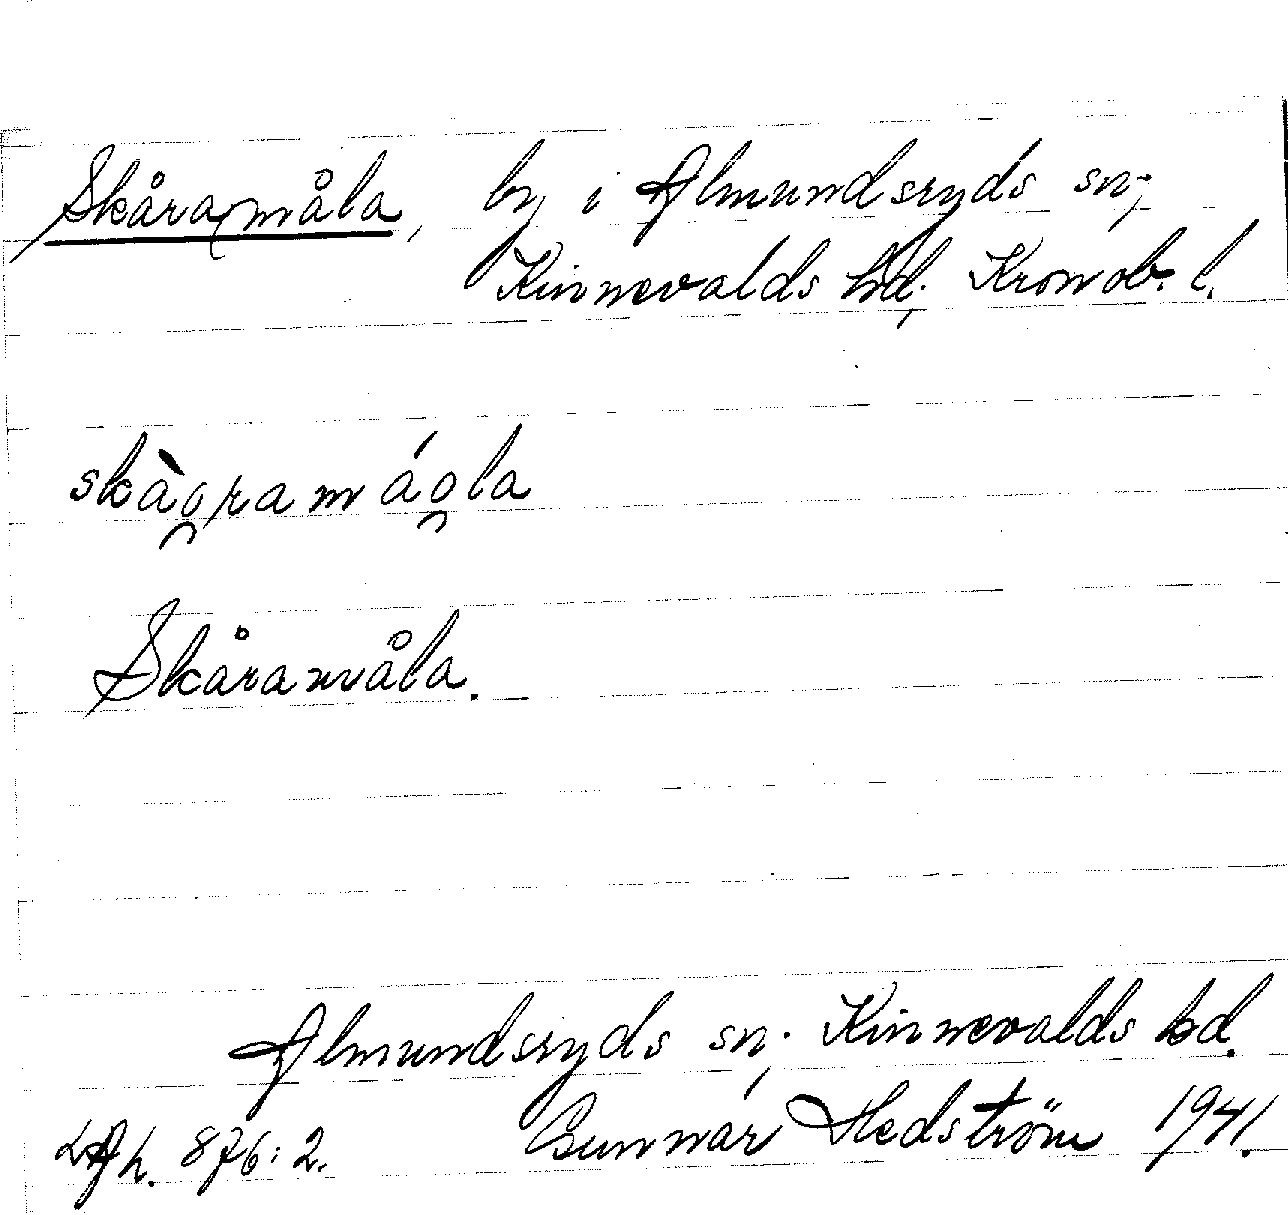 Skåramåla, by i Almundsryds sn;
Kinnevalds hd; Kronob. l.
skàǫramáǫla
Skåramåla.
Almundsryds sn; Kinnevalds hd.
Gunnar Hedström 1941.
LAL. 876:2.